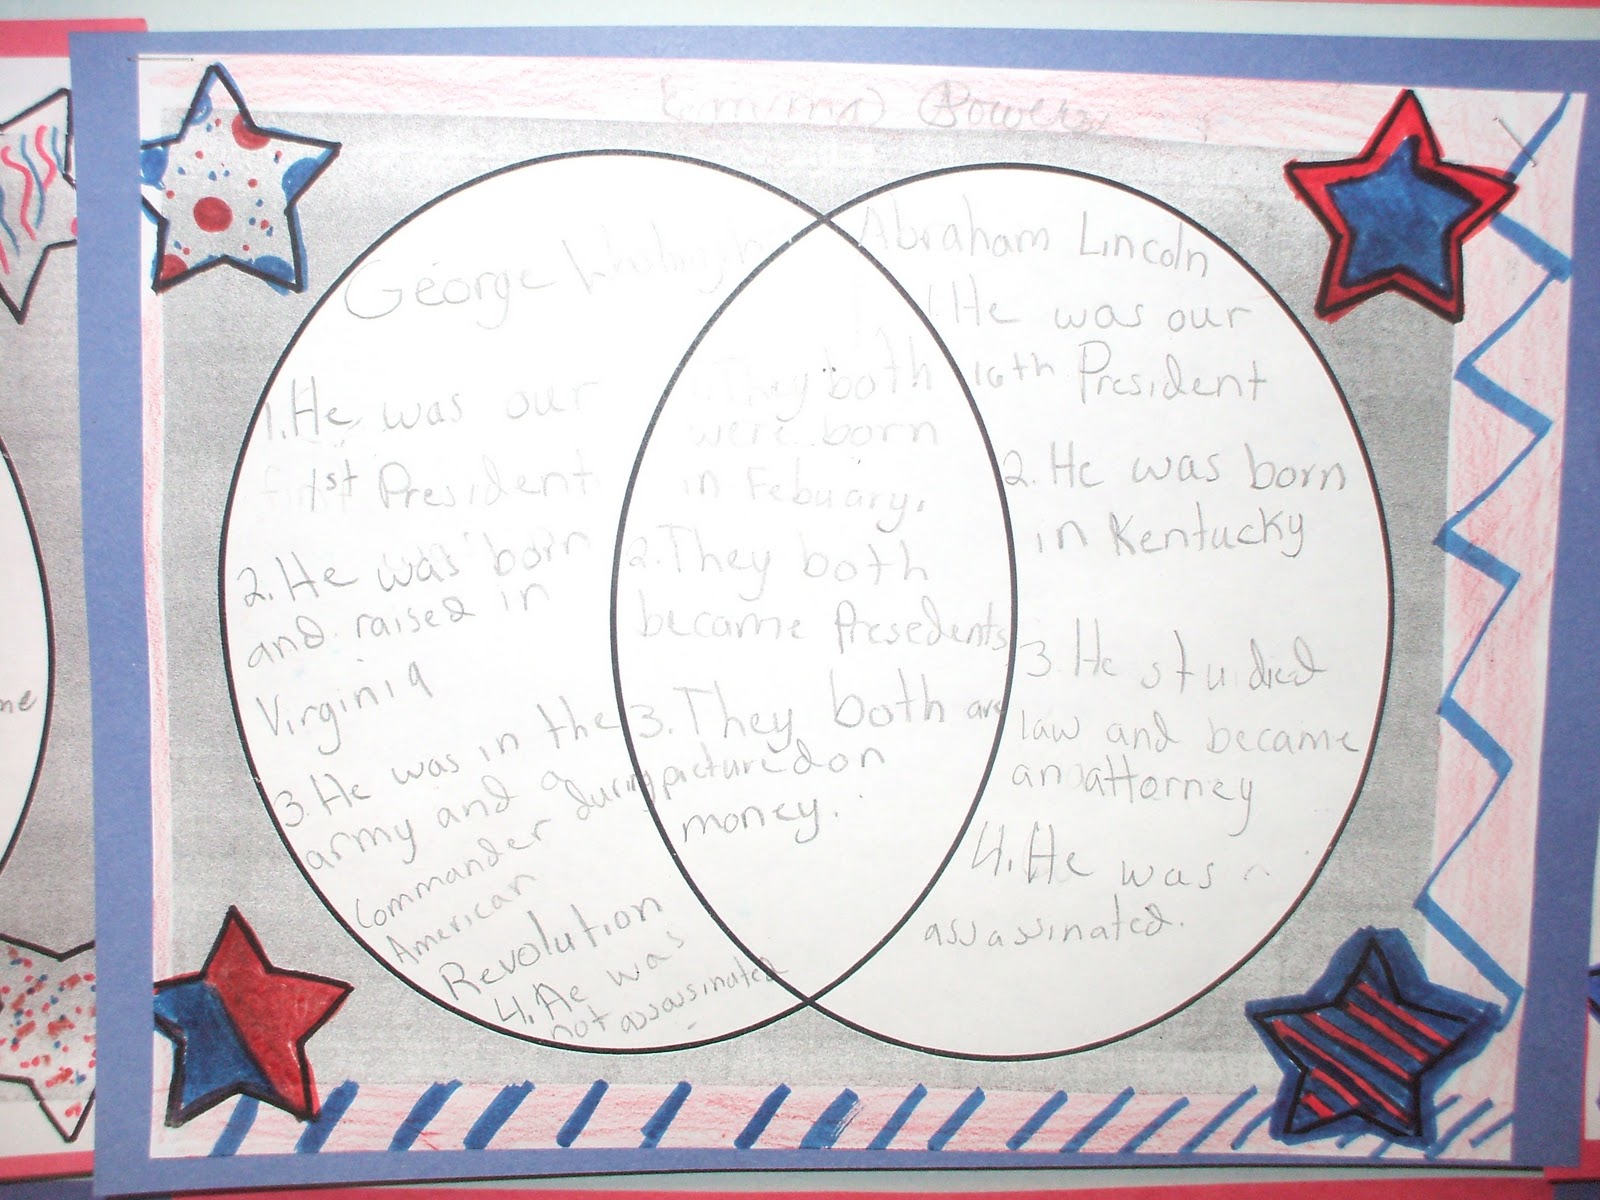 Powers
George
1. He was our
1st President
2. He was born
and raised in
Virginia
3. He was in the
army and a
Commander during
American
Revolution
4. He was
not assassinated
They both
were born
in Febuary.
2. They both
became Presedents
3. They both are
pictured on
money.
Abraham Lincoln
1. He was our
16th President
2. He was born
in Kentucky
3. He stuidied
law and became
an attorney
4. He was
assassinated.
me